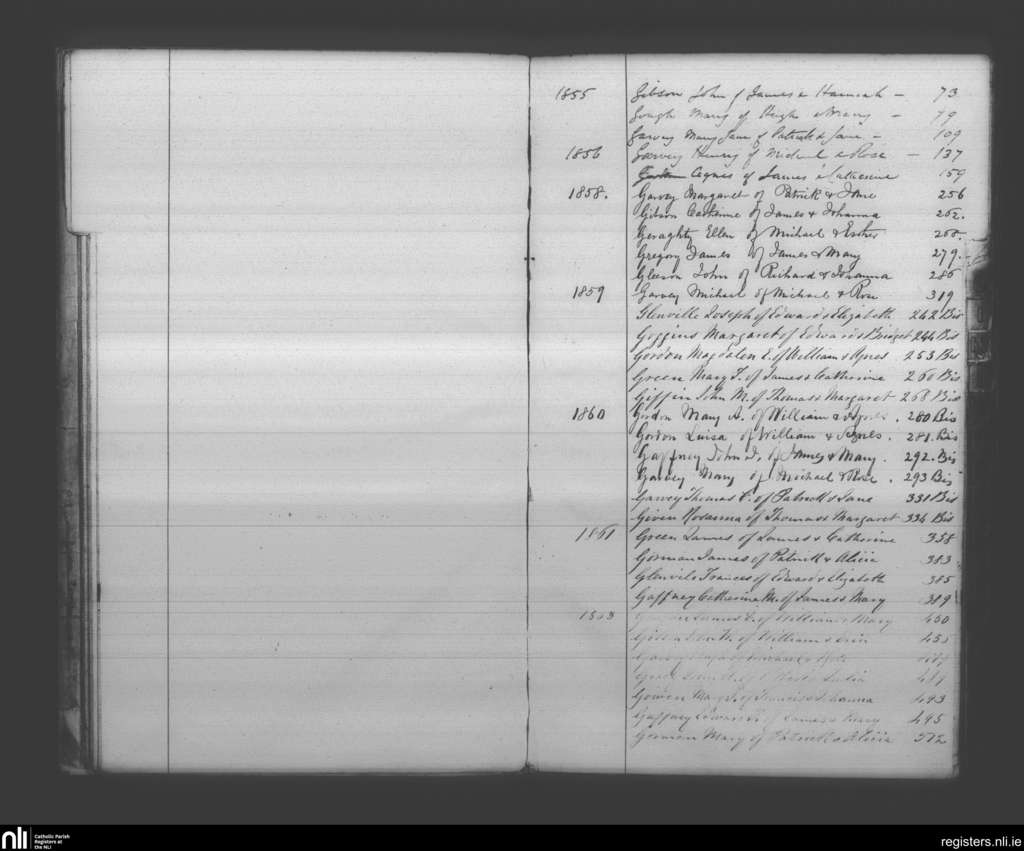 1855 Gibson John of James & Hannah - 73
Gough Mary of Hugh & Mary - 79
Garvey Mary Jane of Patrick & Jane - 109
1856 Garvey Henry of Michael & Rose - 137
Agnes of James & Catherine 159
1858. Garvey Margaret of Patrick & Jane 256
Gibson Catherine of James & Johanna 262.
Geraghty Ellen of Michael & Esther 268.
Gregory James of James & Mary 279.
Gleeson John of Richard & Johanna 286
1859 Garvey Michael of Michael & Rose 319
Glenville Joseph of Edward & Elizabeth 242 Bis
Goggins Margaret of Edward & Bridget 244 Bis
Gordon Magdalen E. of William & Agnes 253 Bis
Green Mary T. of James & Catherine 260 Bis
Giffin John M. of Thomas & Margaret 268 Bis
1860 Gordon Mary A. of William & Agnes. 280 Bis
Gordon Luisa of William & Agnes. 281. Bis
Gaffney John J. of James & Mary. 292. Bis
Garvey Mary of Michael & Rose. 293 Bis
Garvey Thomas P. of Patrick & Jane 331 Bis
Given Rosanna of Thomas & Margaret 334 Bis
1861 Green James of James & Catherine 358
Gorman James of Patrick & Alicia 383
Glenvile Frances of Edward & Elizabeth 385
Gaffney Catherine M. of James & Mary 389
James of William & Mary 450
of William & 455
of
481
Gowen Mary J. of Francis & Johanna 493
Gaffney Edward F. of James & Mary 495
Gorman Mary of Patrick & Alicia 572
nli
Catholic Parish
Registers at
the NLI
registers.nli.ie